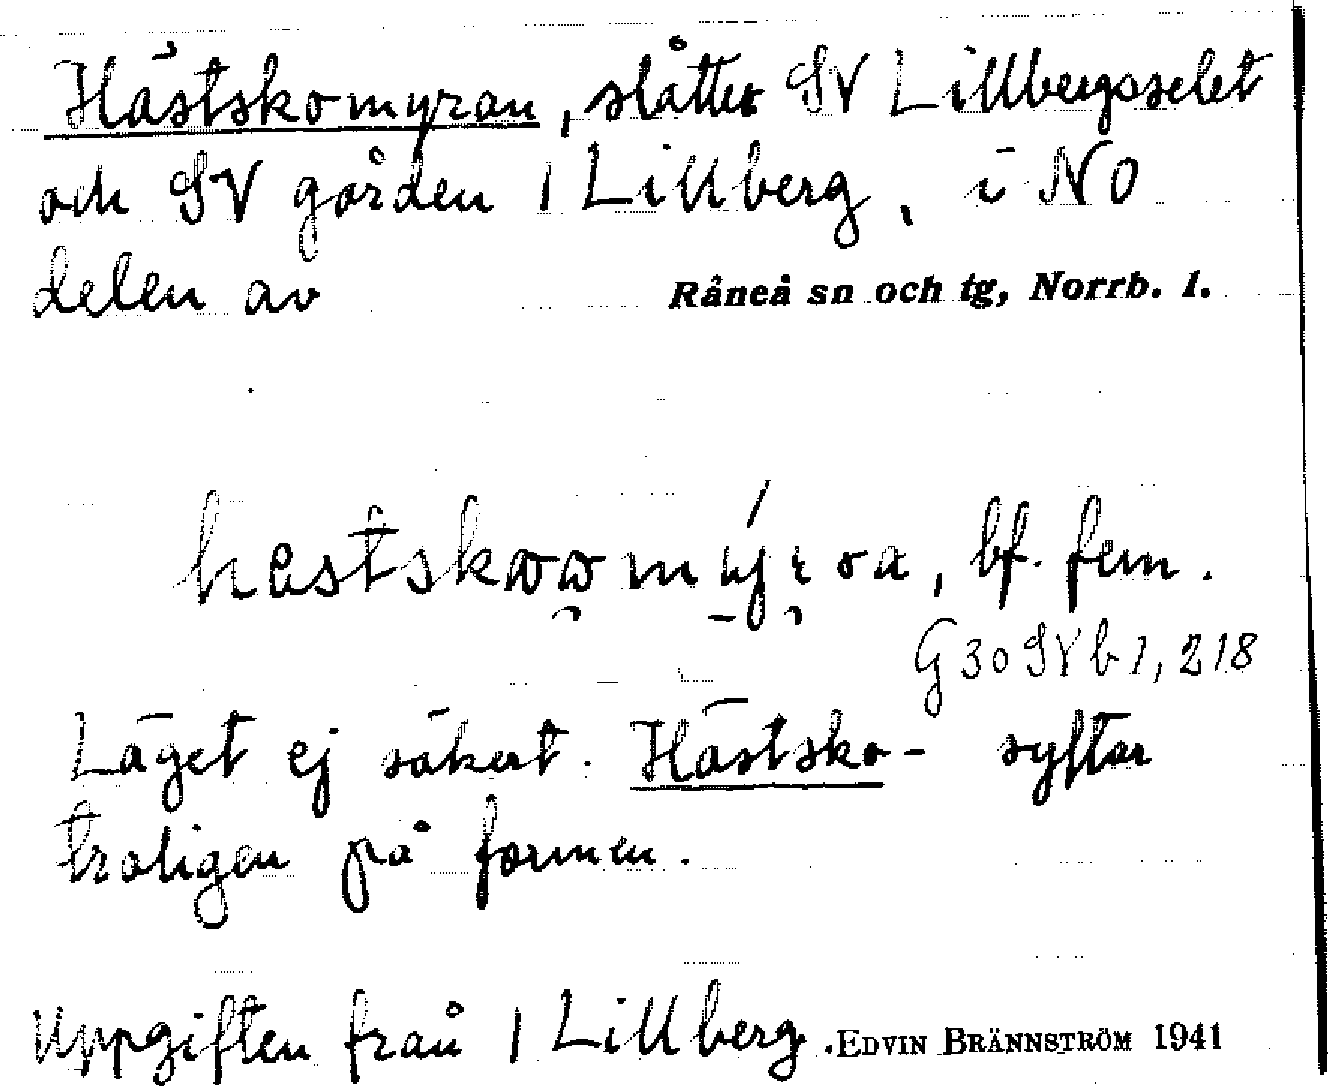 Hästskomyran, slåtter SV Lillbergsselet
och SV gården 1 Lillberg, i NO
delen av Råneå sn och tg, Norrb. l.
bf. fem.
G 30 SV b 1, 218
Läget ej säkert. Hästsko- syftar
troligen på formen.
Uppgiften från 1 Lillberg. EDVIN BRÄNNSTRÖM 1941